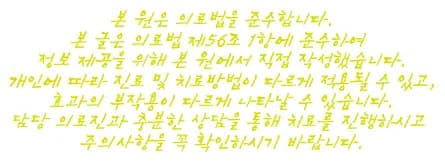 본 원은 의료법을 준수합니다.
본 글은 의료법 제56조 1항에 준수하여
정보 제공을 위해 본 원에서 직접 작성했습니다.
개인에 따라 진료 및 치료방법이 다르게 적용될 수 있고,
효과와 부작용이 다르게 나타날 수 있습니다.
담당 의료진과 충분한 상담을 통해 치료를 진행하시고
주의사항을 꼭 확인하시기 바랍니다.